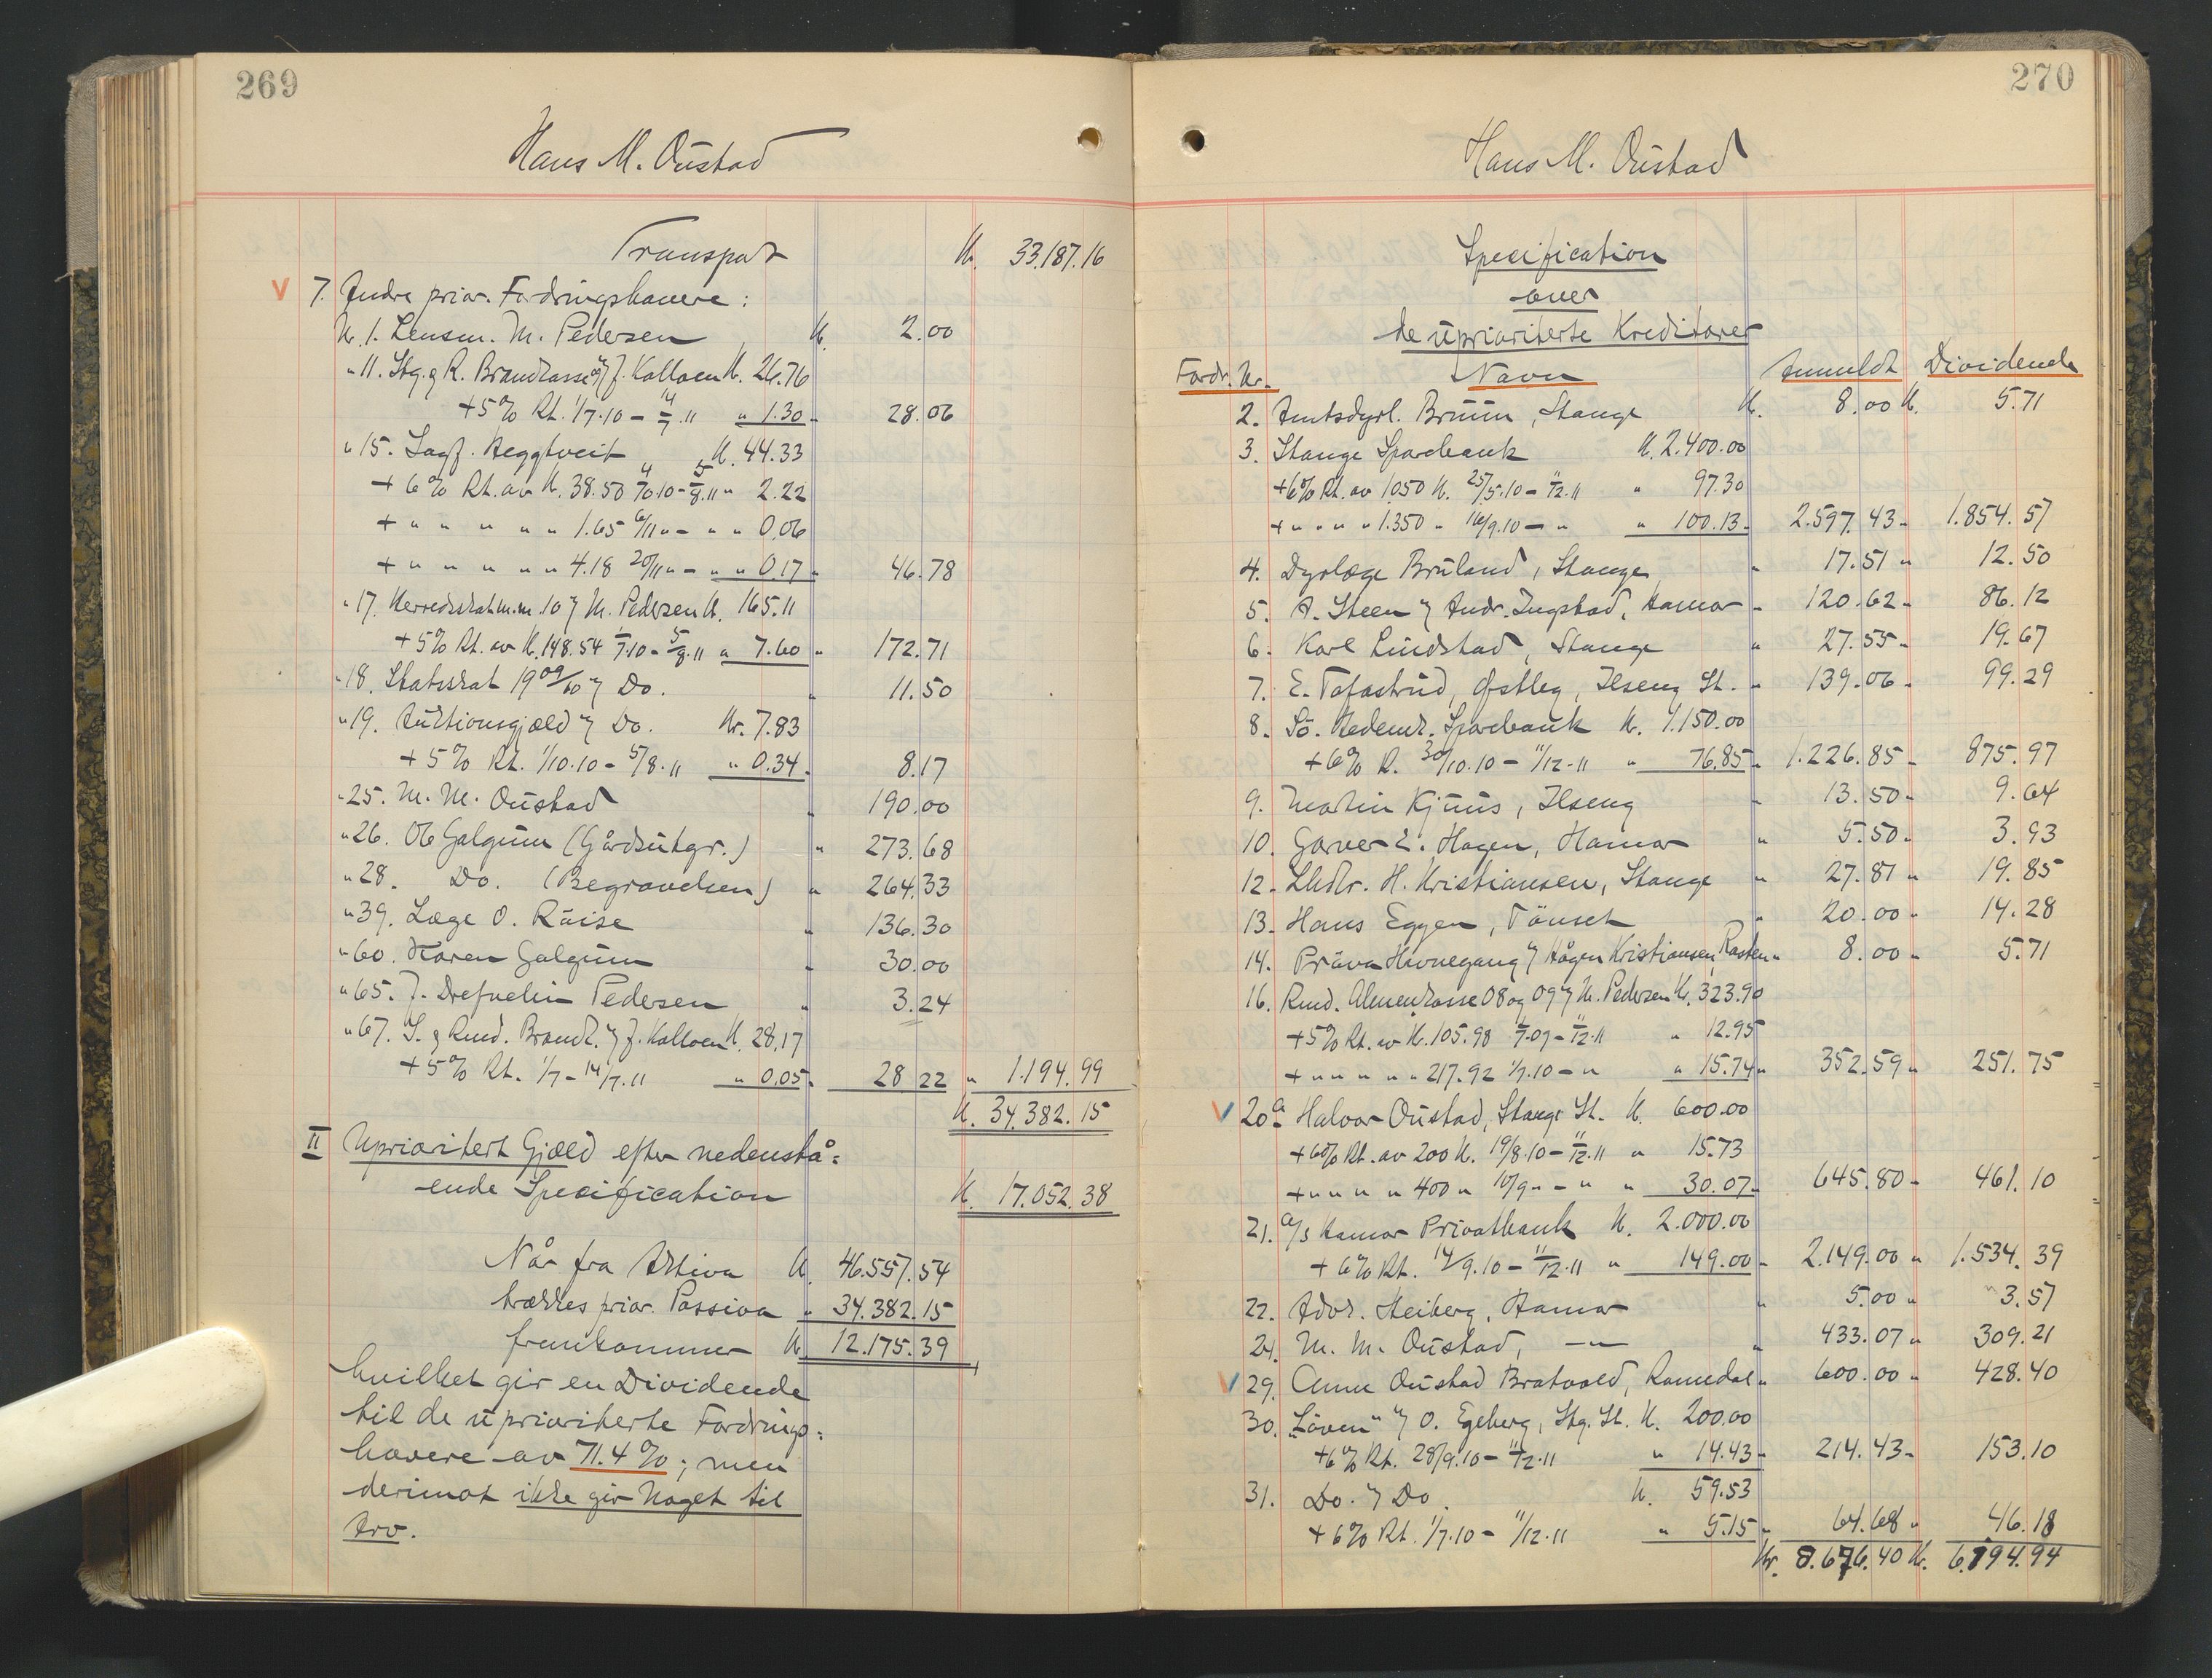 269
Hans M. Oustad
Transport Kr. 33.187.16
V 7. Andre prior. Fordringshavere:
Nr. 1. Lensm. M. Pedersen Kr. 2.00
" 11. Stg. & R. Brandkasse v/ J. Kolloen Kr. 26.76
+ 5% Rt. 1/7.10 - 14/7.11 " 1.30 " 28.06
" 15. Sagf. Heggtveit Kr. 44.33
+ 6% Rt. av Kr. 38.50 4/8.10 - 5/8.11 " 2.22
+ " " " " " 1.65 6/11 " - " " 0.06
+ " " " " " 4.18 20/11 " - " " 0.17 " 46.78
" 17. Herredsskat m.m. 10 v/ M. Pedersen Kr. 165.11
+ 5% Rt. av Kr. 148.54 1/7.10 - 5/8.11 " 7.60 " 172.71
" 18. Statsskat 1909/10 v/ Do. " 11.50
" 19. Auktionsgjæld v/ Do. Kr. 7.83
+ 5% Rt. 1/10.10 - 5/8.11 " 0.34 " 8.17
" 25. M. M. Oustad " 190.00
" 26. Ole Galgum (Gårdsutgr.) " 273.68
" 28. Do. (Begravelsen) " 264.33
" 39. Læge O. Røise " 136.30
" 60. Karen Galgum " 30.00
" 65. J. Drefvelin Pedersen " 3.24
" 67. S. & Rmd. Brandk. v/ J. Kolloen Kr. 28.17
+ 5% Rt. 1/7 - 14/7.11 " 0.05 " 28 22 " 1.194.99
Kr. 34.382.15
II Uprioritert Gjæld efter nedenstå=
ende Specification Kr. 17.052.38
Når fra Aktiva Kr. 46.557.54
trækkes prior. Passiva " 34.382.15
fremkommer Kr. 12.175.39
hvilket gir en Dividende
til de uprioriterte Fordrings=
havere av 71.4%; men
derimot ikke gir noget til
Arv.
270
Hans M. Oustad
Specification
over
de uprioriterte Kreditorer
Fordr. Nr. Navn Anmeldt Dividende
2. Amtsdyrl. Bruun, Stange Kr. 8.00 Kr. 5.71
3. Stange Sparebank Kr. 2.400.00
+ 6% Rt. av 1.050 Kr. 25/5.10 - 11/12.11 " 97.30
+ " " " " 1.350 " 16/9.10 - " " 100.13 " 2.597.43 " 1.854.57
4. Dyrlæge Bruland, Stange " 17.51 " 12.50
5. A. Steen v/ Andr. Ingstad, Hamar " 120.62 " 86.12
6. Karl Lindstad, Stange " 27.55 " 19.67
7. E. Tofastrud, Østleg, Ilseng St. " 139.06 " 99.29
8. Sø. Hedem. Sparebank Kr. 1.150.00
+ 6% R. 30/10.10 - 11/12.11 " 76.85 " 1.226.85 " 875.97
9. Martin Kjuus, Ilseng " 13.50 " 9.64
10. Garver E. Hagen, Hamar " 5.50 " 3.93
12. Lhdlr. H. Kristiansen, Stange " 27.81 " 19.85
13. Hans Eggen, Tönset " 20.00 " 14.28
14. Pröven Havnegang v/ Hågen Kristiansen, Rasten " 8.00 " 5.71
16. Rmd. Almenkasse 08 og 09 v/ M. Pedersen Kr. 323.90
+ 5% Rt. av Kr. 105.98 1/7.09 - 11/12.11 " 12.95
+ " " " " " 217.92 1/7.10 - " " 15.74 " 352.59 " 251.75
V 20a Halvor Oustad, Stange St. Kr. 600.00
+ 6% Rt. av 200 Kr. 19/8.10 - 11/12.11 " 15.73
+ " " " " 400 " 10/9 " - " " 30.07 " 645.80 " 461.10
21. A/s Hamar Privatbank Kr. 2.000.00
+ 6% Rt. 14/9.10 - 11/12.11 " 149.00 " 2.149.00 " 1.534.39
22. Advk. Heiberg, Hamar " 5.00 " 3.57
24. M. M. Oustad, — " — " 433.07 " 309.21
V 29. Anne Oustad Bratvold, Romedal " 600.00 " 428.40
30. "Löven" v/ O. Egeberg, Stg. St. Kr. 200.00
+ 6% Rt. 28/9.10 - 11/12.11 " 14.43 " 214.43 " 153.10
31. Do. v/ Do. Kr. 59.53
+ 6% Rt. 1/7.10 - 11/12.11 " 5.15 " 64.68 " 46.18
Kr. 8.676.40 Kr. 6.194.94